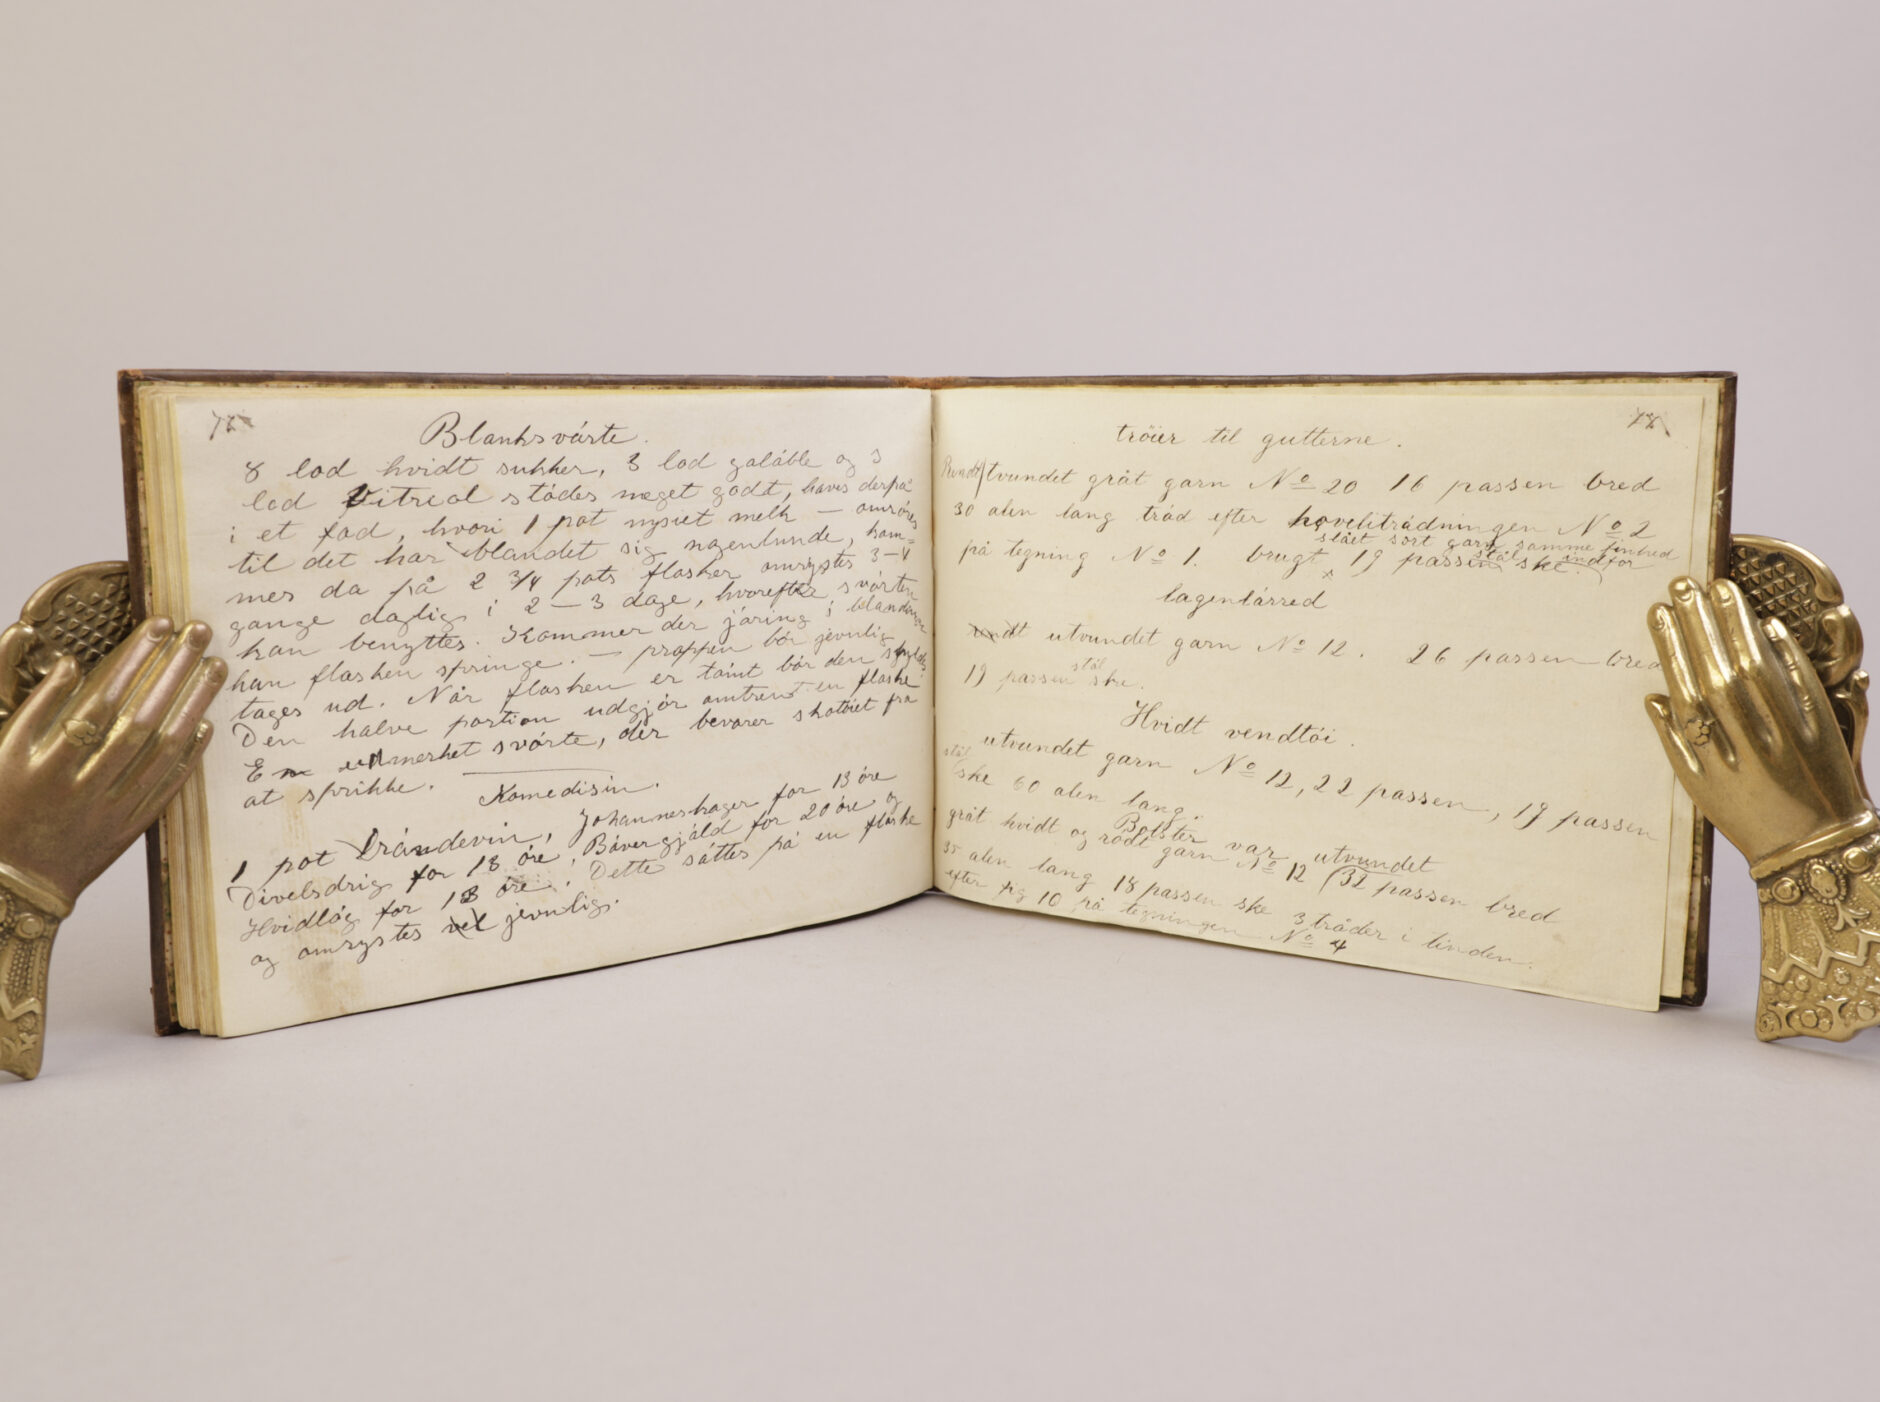 Blanksvärte.
8 lod hvidt sukker, 3 lod galäble og 3
lod Vitreol stödes meget godt, haves derpå
i et fad, hvori 1 pot nysiet melk — omröres
til det har blandet sig nogenlunde, kom=
mes da på 2 3/4 pots flasker omrystes 3–4
gange daglig i 2–3 dage, hvorefter svärten
kan benyttes. Kommer der järing i blandingen
kan flasken springe. — proppen bör jevnlig
tages ud. Når flasken er tömt bör den skylles.
Den halve portion udgjör omtrent en flaske
En udmerket svärte, der bevarer skotöiet fra
at sprikke.
Komedisin.
1 pot brändevin, Johanneshager for 13 öre
Divelsdrig for 18 öre, Bävergjäld for 20 öre og
Hvidlög for 18 öre. Dette sättes på en flaske
og omrystes vel jevnlig.
tröier til gutterne.
Rundt tvundet gråt garn No 20 16 passen bred
30 alen lang tråd efter hovelitrådningen No 2
slået sort garn samme finhed
på tegning No 1. brugt 19 passen stål ske indfor
lagenlärred
utvundet garn No 12. 26 passen bred
19 passen stål ske.
Hvidt vendtöi.
utvundet garn No 12, 22 passen, 19 passen
stål ske 60 alen lang
Bolster var utvundet
gråt hvidt og rödt garn No 12 (32 passen bred
35 alen lang 18 passen ske 3 tråder i tinden.
efter fig 10 på tegningen No 4